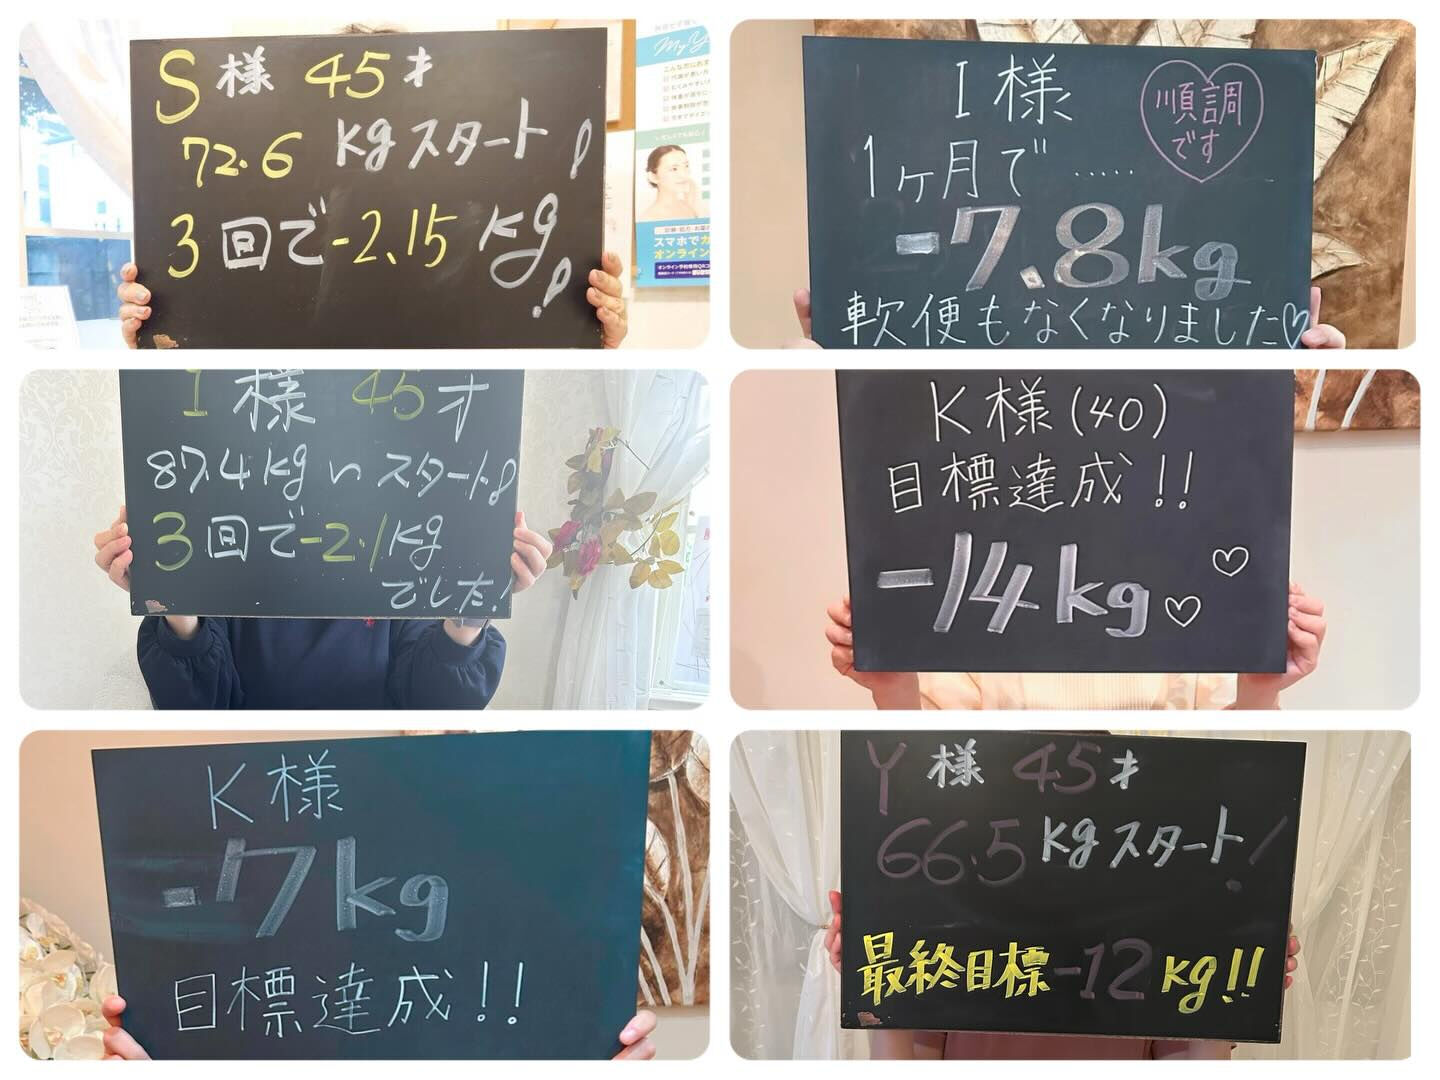 S様 45才
72.6 kgスタート!
3回で-2.15 kg!
My
こんな方におす
スマホで
オンライン
I様
順調
です
1ヶ月で.....
-7.8kg
軟便もなくなりました♡
I様 45才
87.4kgいスタート!
3回で-2.1kg
でした!
K様(40)
目標達成!!
-14kg♡♡
K様
-7kg
目標達成!!
Y様 45才
66.5kgスタート!
最終目標-12kg!!